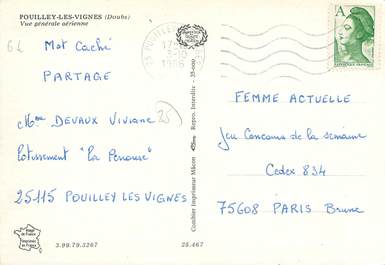 POUILLEY-LES-VIGNES (Doubs)
Vue générale aérienne
Mot Caché
PARTAGE
Mme DEVAUX Viviane
25
Lotissement "La Perouse"
25115 POUILLEY LES VIGNES
3.99.79.3267
25.467
Combier Imprimeur Mâcon
Repro. Interdite - 35-600
A
FEMME ACTUELLE
Jeu Concours de la semaine
Cedex 834
75608 PARIS Brune